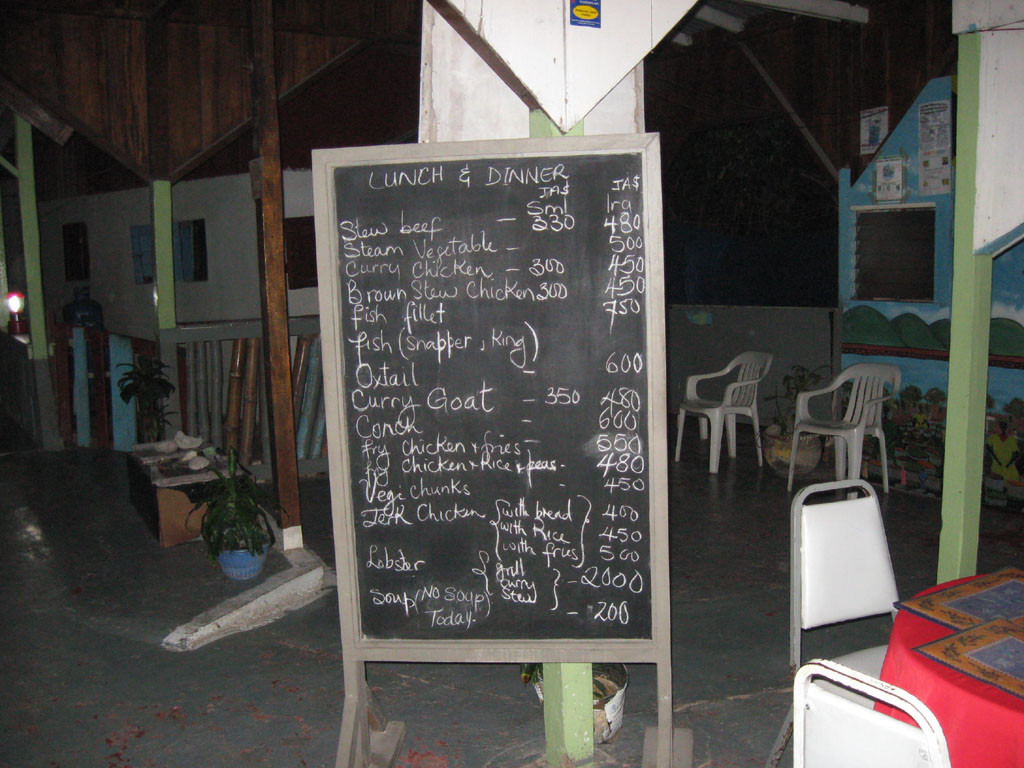 LUNCH & DINNER
JA$ JA$
Sml lrg
Stew beef - 330 480
Steam Vegetable - 500
Curry Chicken - 300 450
Brown Stew Chicken 300 450
fish fillet 750
fish (Snapper, King)
Oxtail - 600
Curry Goat - 350 480
Conch - 600
fry Chicken + fries - 550
fry Chicken + Rice + peas - 480
Vegi Chunks - 450
Jerk Chicken { with bread } 400
with Rice 450
with fries 500
Lobster { grill
curry } - 2000
Stew
Soup (NO SOUP - 200
Today.